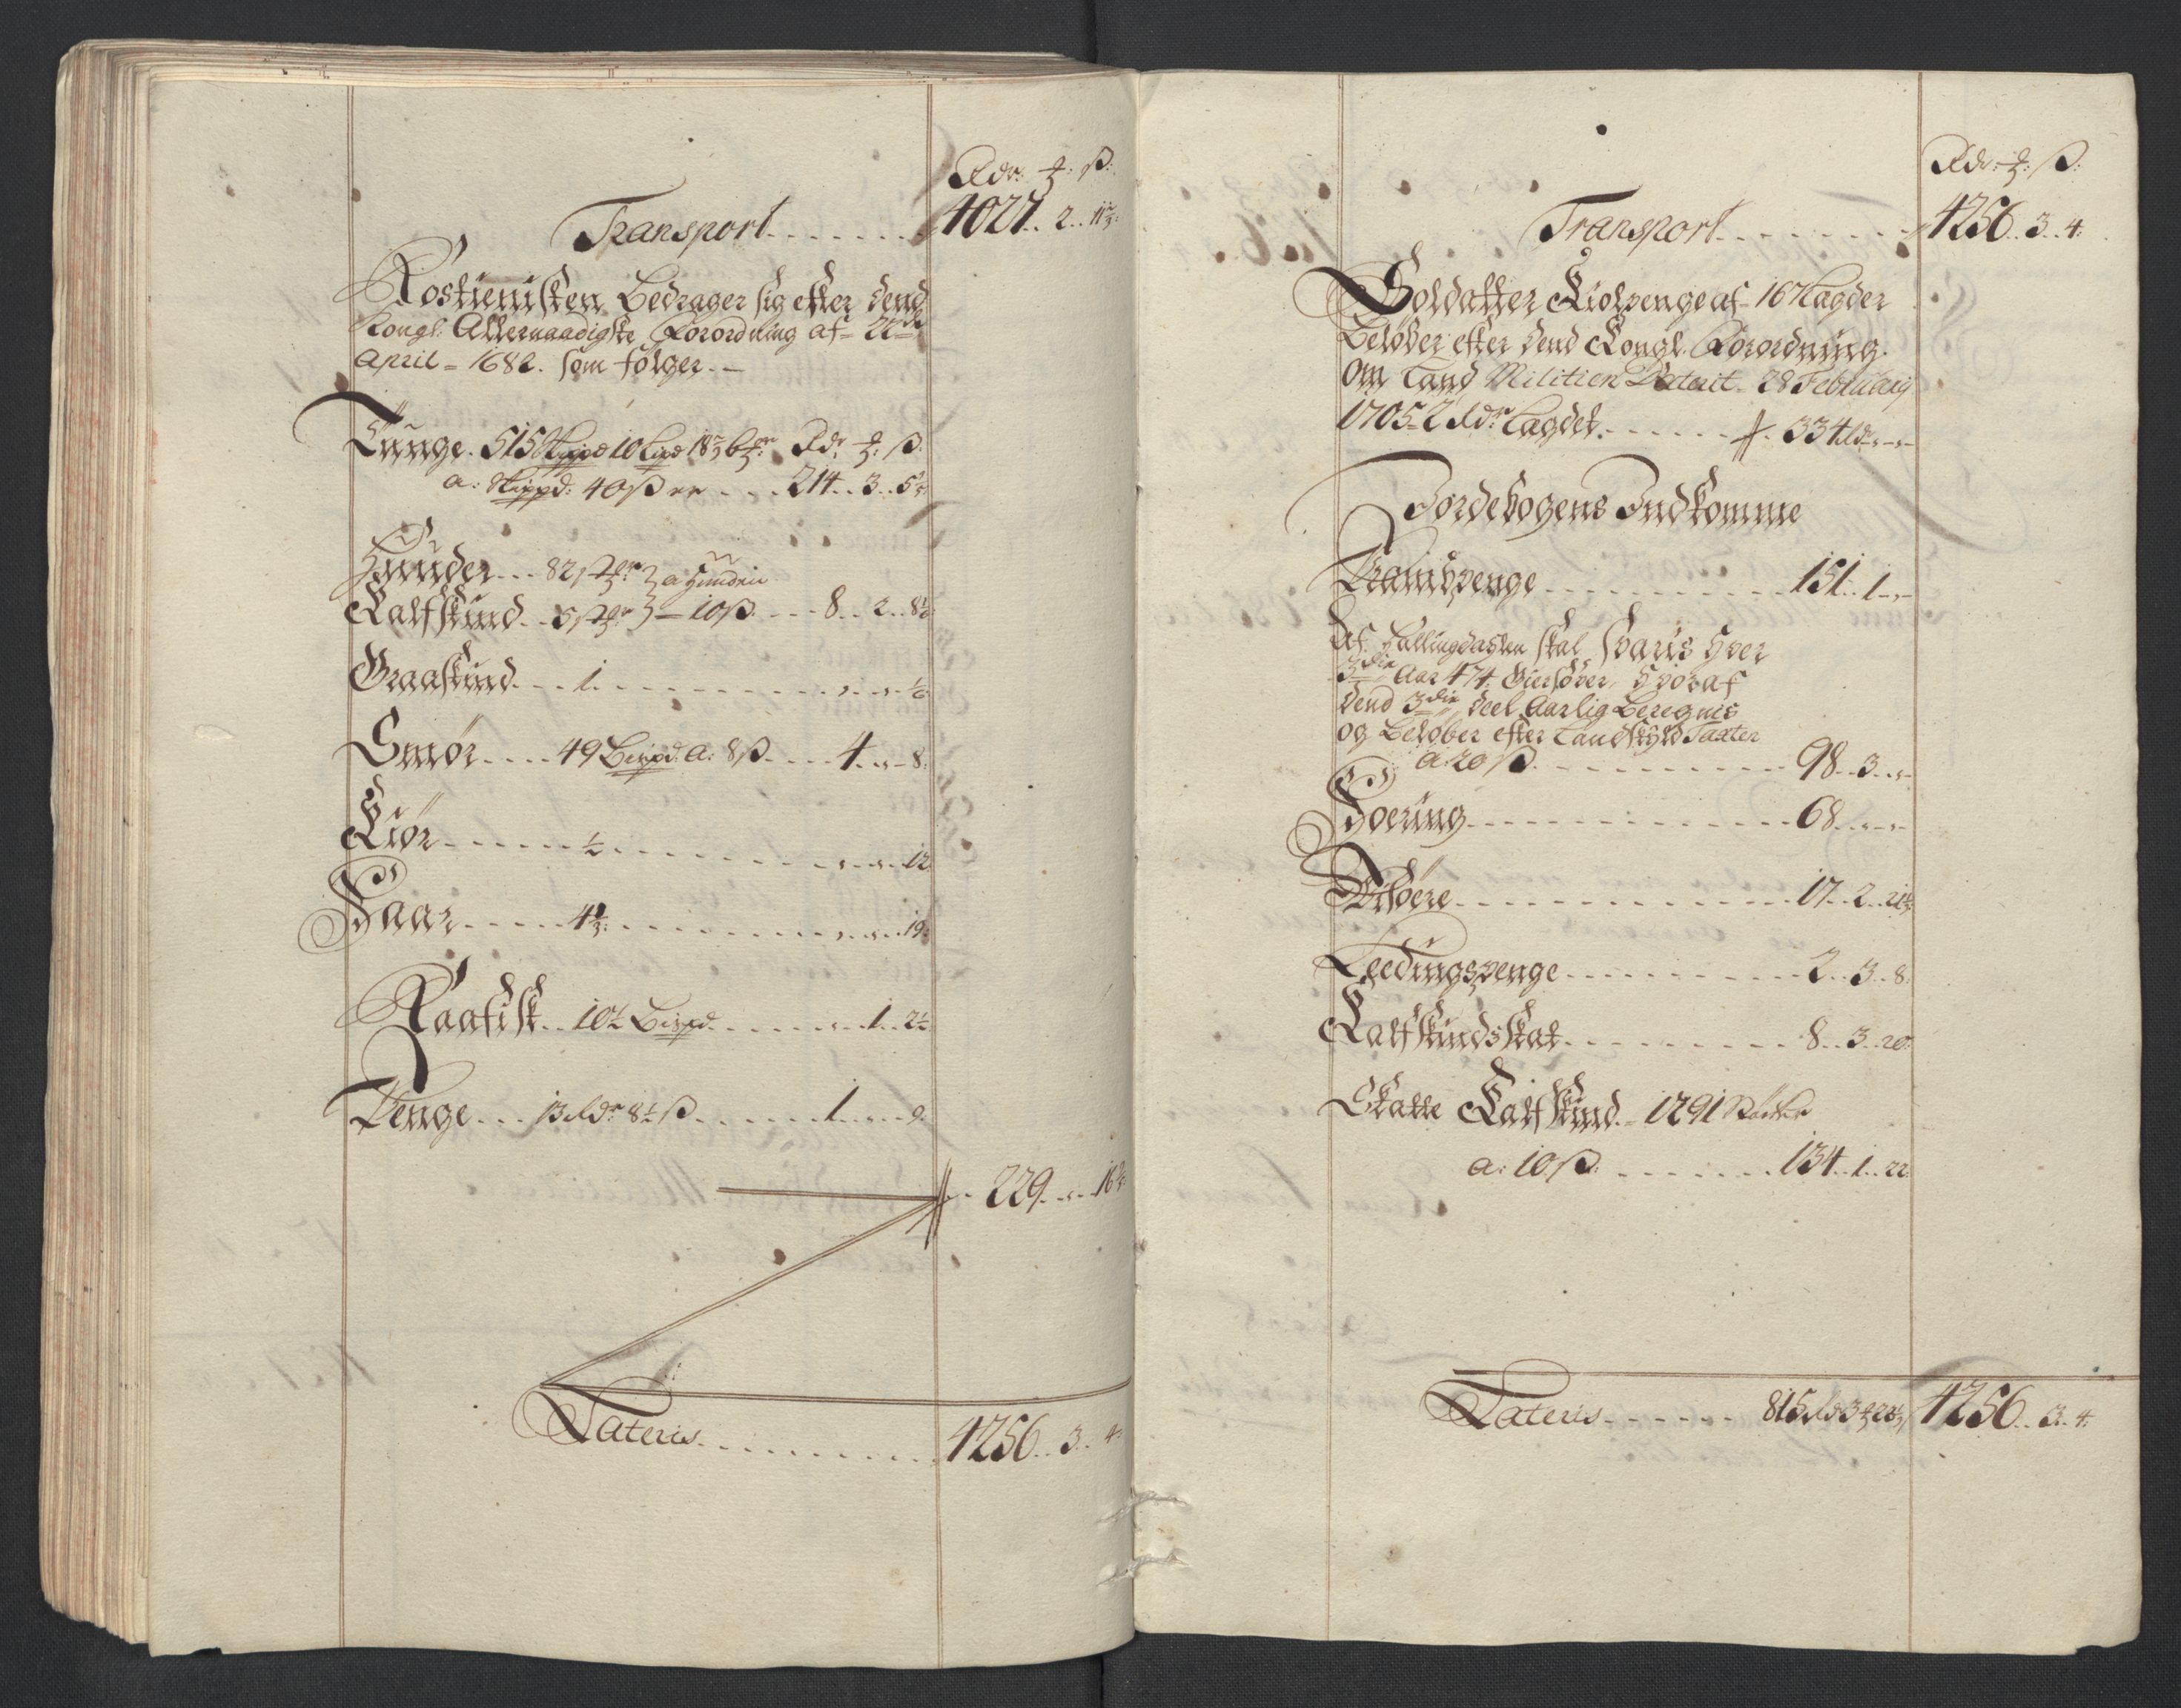 Rdr: ꝫ: ß:
Transport . . . . . . . 4027 . . 2 . . 11⅔:
Rostienisten Bedrager sig efter dend
Kongl: Allernaadigste Forordning af = 22de
April = 1682. som følger. –
Tunge. 515 Skippd 10 Lispd 18⅔ Rdr ꝫ: ß
a: Skippd: 40 ß er . . . 214 . . 3 . . 5⅓
Huuder . . . 82 } a Huuden
Kalfskind . . 5 } – 10 ß . . . 8 . . 2 . . 8⅙
Graaskind . . . 1. . . . . . . . . . ⅙
Smør . . . . 49 Bispd: a: 8 ß . . . . 4 . . – 8:
Tiør . . . . . ½ . . . . . . . . . . 12
Haar . . . . . 4⅓: . . . . . . . . . . 19:
Raafisk . . 10½ Bispd . . . . . . . 1 . . 2½
Penge . . . 13 Rdr 8½ ß . . . . . . 1 . . – 9:
229 . . – . . 16⅔:
Lateris . . . . . . . . . 4256 . . 3 . . 4:
Rdr: ꝫ: ß:
Transport . . . . . . . 4256 . . 3 . . 4:
Soldatter Kiolpenge af 167 Lagder
Beløber efter dend Kongl. Forordning.
Om Land Militien Daterit. 28 February
1705 – 2 Rdr Lagdet. . . . . . . 334 Rdr – –
Jordebogens Indkomme
Trainspenge . . . . . . . . . . 151 . . 1 – –
Af Hallingdahlen skal svaris hver
3die Aar 474. Giersøder, hvoraf
dend 3die deel Aarlig Beregnis
og Beløber efter Landskyld Taxten
a: 20 ß . . . . . . . . . . 98 . . 3 . . –
Foering . . . . . . . . . . . . . 68 . . – –
Wisøere . . . . . . . . . . . . . 17 . . 2 . . 21⅓
Leedingspenge . . . . . . . . . . 2 . . 3 . . 8:
Kalfskindsskat . . . . . . . . . 8 . . 3 . . 20:
Skatte Kalfskind – 1291 Støcker
a: 10 ß: . . . . . . . 134 . . 1 . . 22:
Lateris . . . . . . 815 Rdr 3 ꝫ 23⅓ 4256 . . 3 . . 4: